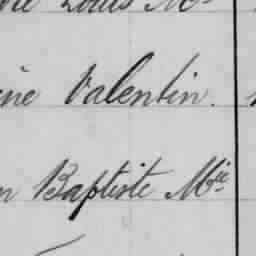 Louis M
ine Valentin.
n Baptiste Mie